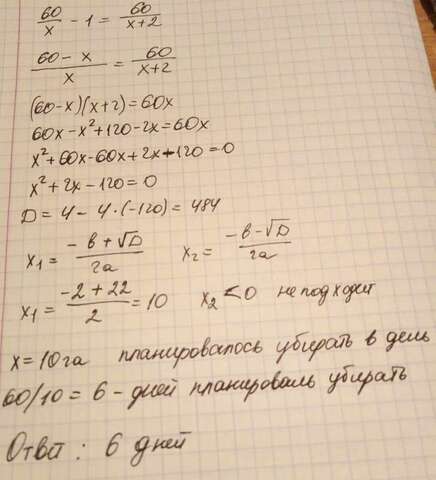 60/x - 1 = 60/(x+2)
(60-x)/x = 60/(x+2)
(60-x)(x+2)=60x
60x-x²+120-2x=60x
x²+60x-60x+2x-120=0
x²+2x-120=0
D = 4 - 4·(-120) = 484
x₁ = (-в+√D)/2a x₂ = (-в-√D)/2a
x₁ = (-2+22)/2 = 10 x₂ < 0 не подходит
x = 10 га планировалось убирать в день
60/10 = 6 - дней планироваль убирать
Ответ: 6 дней